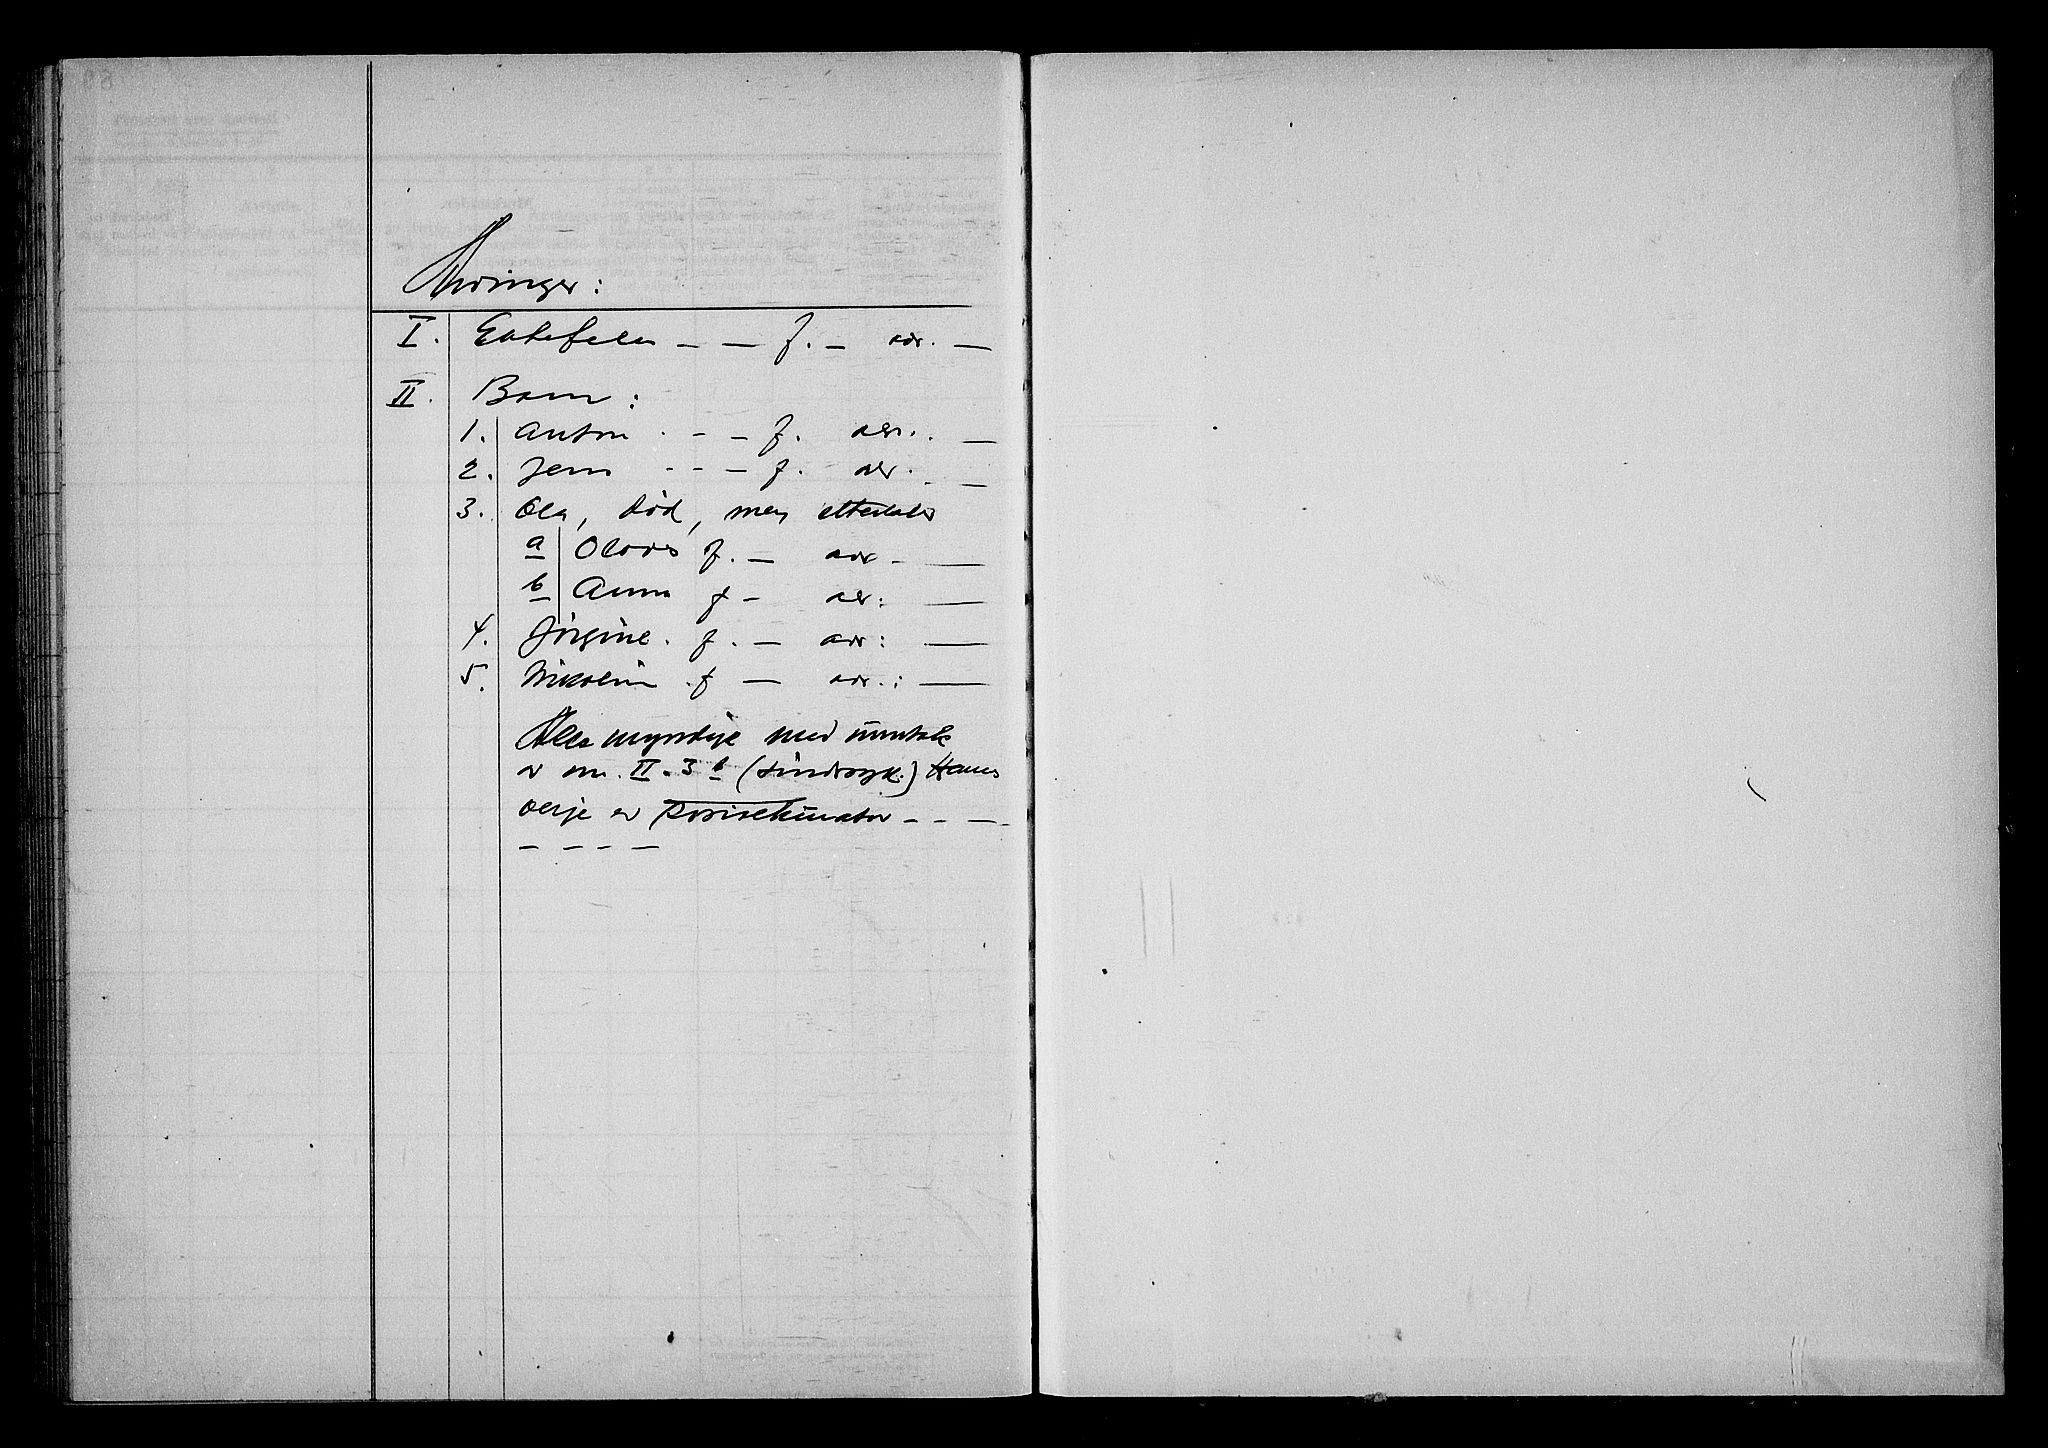 Arvinger:
I. Ektefelle — — f. — adr. —
II. Barn:
1. Anton - - — f. adr. —
2. Jens - - — f. adr. —
3. Ola, død, men etterlater
a Olav f. — adr. —
b Anna f — adr: —
4. Jørgine. f. — adr: —
5. Nikoline f — adr.: —
Alle myndige med unntak
av nr. II-3 b (sindssyk.) Hennes
verje er - - —
— — — —